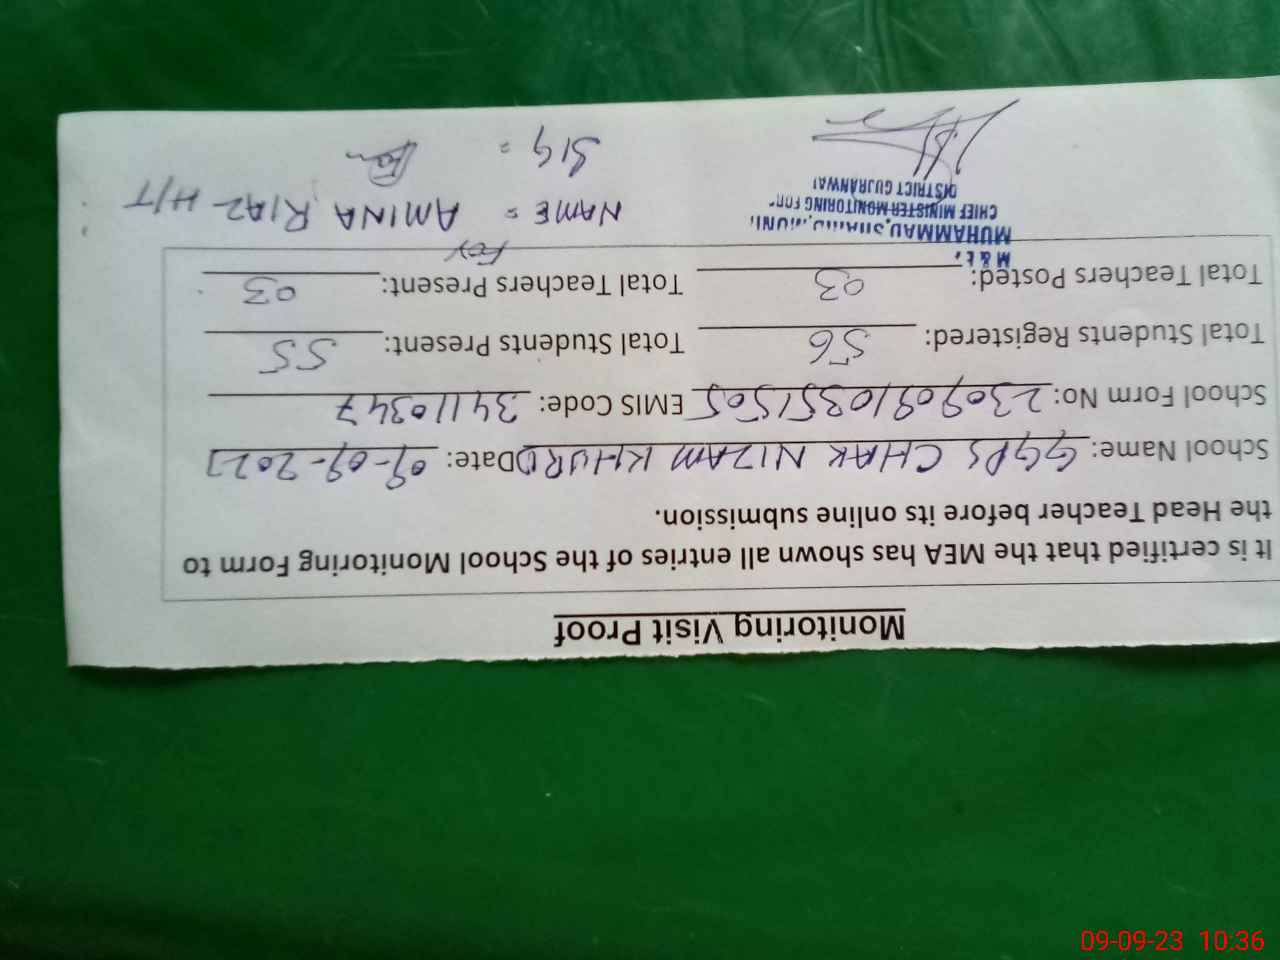 Monitoring Visit Proof
It is certified that the MEA has shown all entries of the School Monitoring Form to
the Head Teacher before its online submission.
School Name: GGPS CHAK NIZAM KHURD Date: 09-09-2023
School Form No: 230909103551505 EMIS Code: 34110347
Total Students Registered: 56 Total Students Present: 55
Total Teachers Posted: 03 Total Teachers Present: 03
M & E.
MUHAMMAD
CHIEF MINISTER MONITORING FOR
DISTRICT GUJRANWAL
For
NAME = AMINA RIAZ H/T
SIG =
09-09-23 10:36